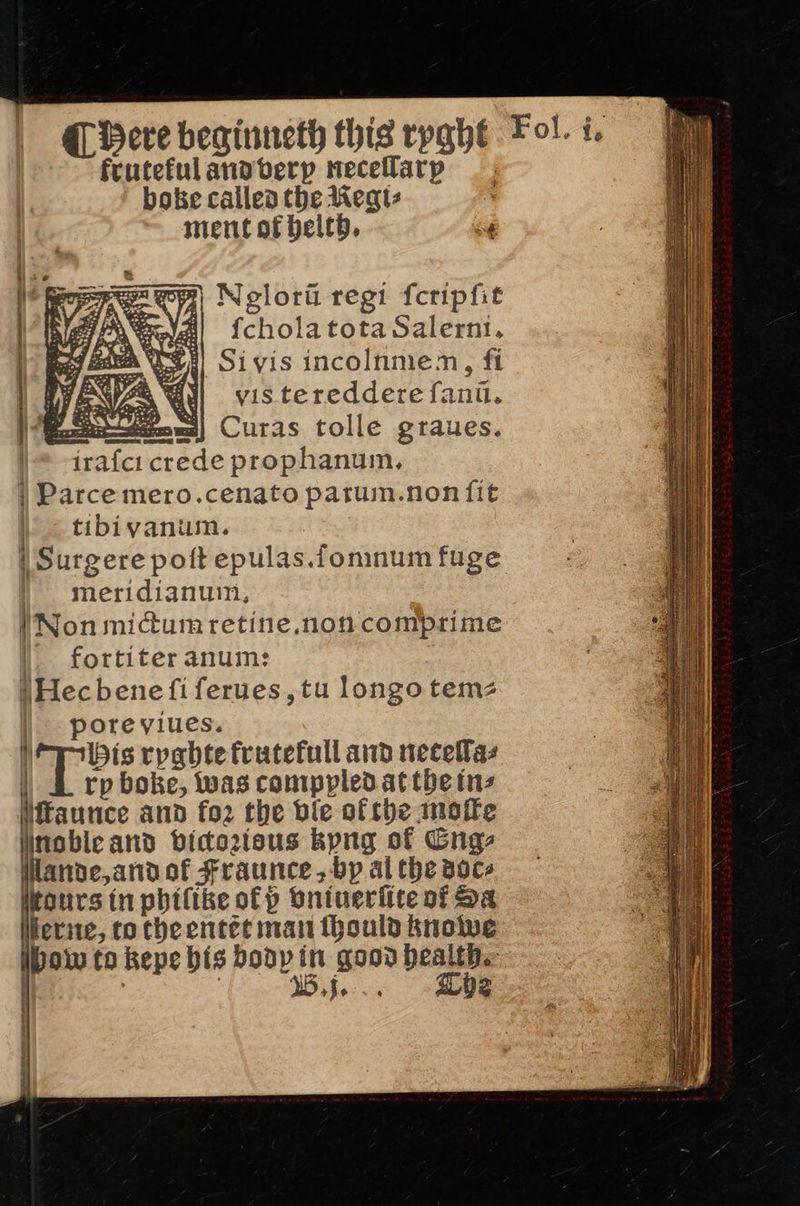 ¶ Here beginneth this ryght Fol. i.
fruteful and very necessary
boke called the Regi⸗
ment of helth.
ANglorū regi ſcripſit
ſchola tota Salerni.
Si vis incolumem, ſi
vis te reddere ſanū.
Curas tolle graues.
iraſci crede prophanum.
Parce mero. cenato parum. non ſit
tibi vanum.
Surgere poſt epulas. ſomnum fuge
meridianum,
Non mictum retine, non comprime
fortiter anum:
Hec bene ſi ſerues, tu longo tem⸗
pore viues.
THis ryghte frutefull and necessa⸗
ry boke, was compyled at the in⸗
staunce and for the vse of the moste
noble and victorious kyng of Eng⸗
lande, and of Fraunce, by al the doc⸗
tours in phisike of yͤ vniuersite of Sa
lerne, to the entēt man should knowe
how to kepe his body in good health.
B.j. The